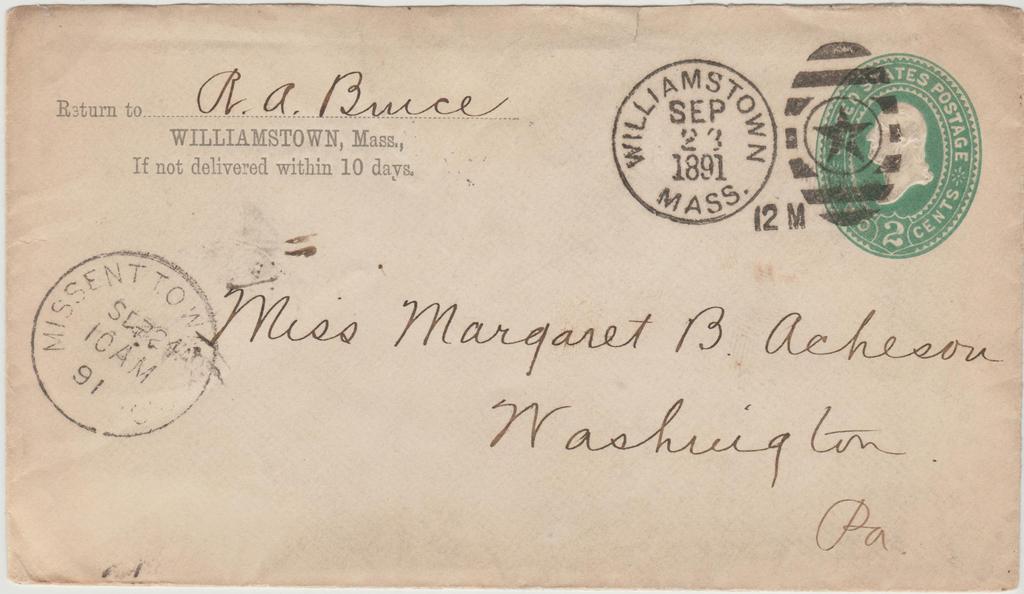 Return to R. A. Bruce
WILLIAMSTOWN, Mass.,
If not delivered within 10 days.
WILLIAMSTOWN
SEP
23
1891
MASS.
12 M
STATES POSTAGE
2 CENTS
MISSENT TO
SEP 24
10 AM
91
Miss Margaret B. Acheson
Washington
Pa.